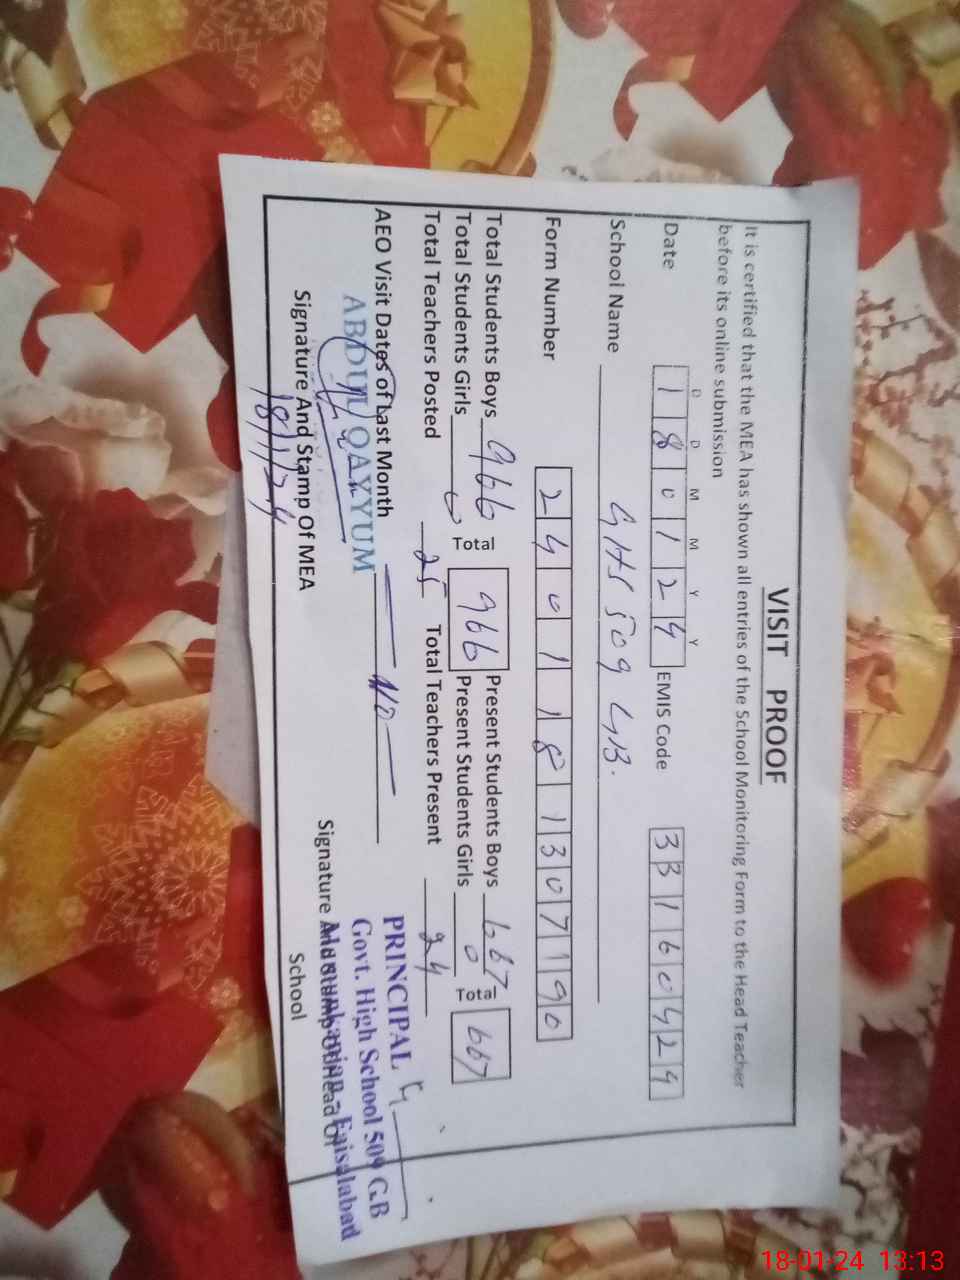 VISIT PROOF
It is certified that the MEA has shown all entries of the School Monitoring Form to the Head Teacher
before its online submission
D D M M Y Y
Date 1 8 0 1 2 4 EMIS Code 3 3 1 6 0 4 2 4
School Name GHS 509 GB.
Form Number 2 4 0 1 1 8 1 3 0 7 1 9 0
Total Students Boys 966 Present Students Boys 667
Total Students Girls Total 966 Present Students Girls 0 Total 667
Total Teachers Posted 25 Total Teachers Present 24
AEO Visit Dates of Last Month No
ABDUL QAYYUM
PRINCIPAL
Govt. High School 509 G.B
Faisalabad
Signature And Stamp Of MEA
Signature And Stamp Of Head Of
School
18/1/24
18-01-24 13:13